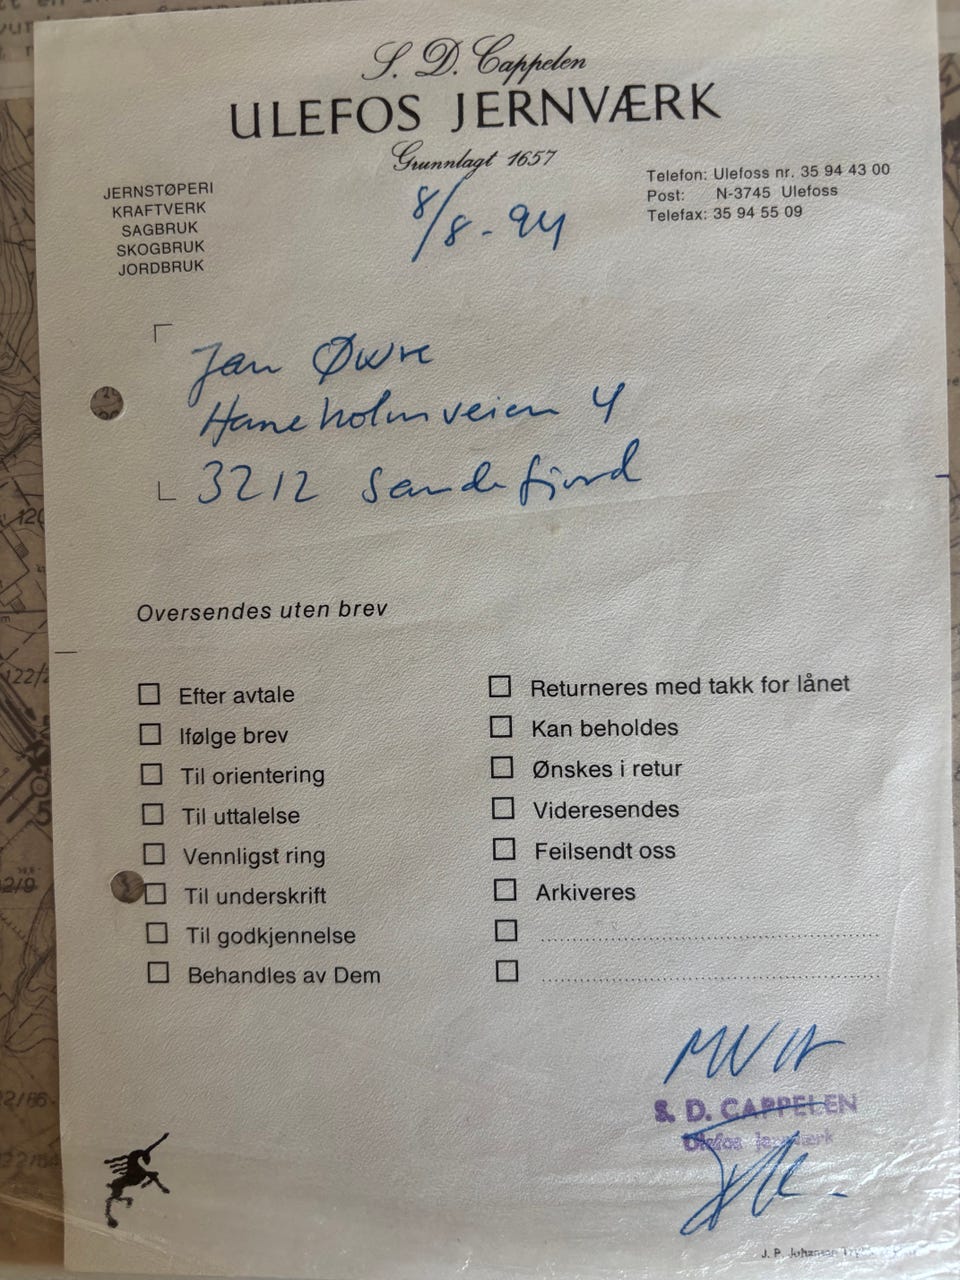 S. D. Cappelen
ULEFOS JERNVÆRK
Grunnlagt 1657
JERNSTØPERI
KRAFTVERK
SAGBRUK
SKOGBRUK
JORDBRUK
Telefon: Ulefoss nr. 35 94 43 00
Post: N-3745 Ulefoss
Telefax: 35 94 55 09
8/8-94
Jan Øwre
Haneholmveien 4
3212 Sandefjord
Oversendes uten brev
Efter avtale
Ifølge brev
Til orientering
Til uttalelse
Vennligst ring
Til underskrift
Til godkjennelse
Behandles av Dem
Returneres med takk for lånet
Kan beholdes
Ønskes i retur
Videresendes
Feilsendt oss
Arkiveres
MVH
S. D. CAPPELEN
Ulefos Jernværk
J. P. Johansen